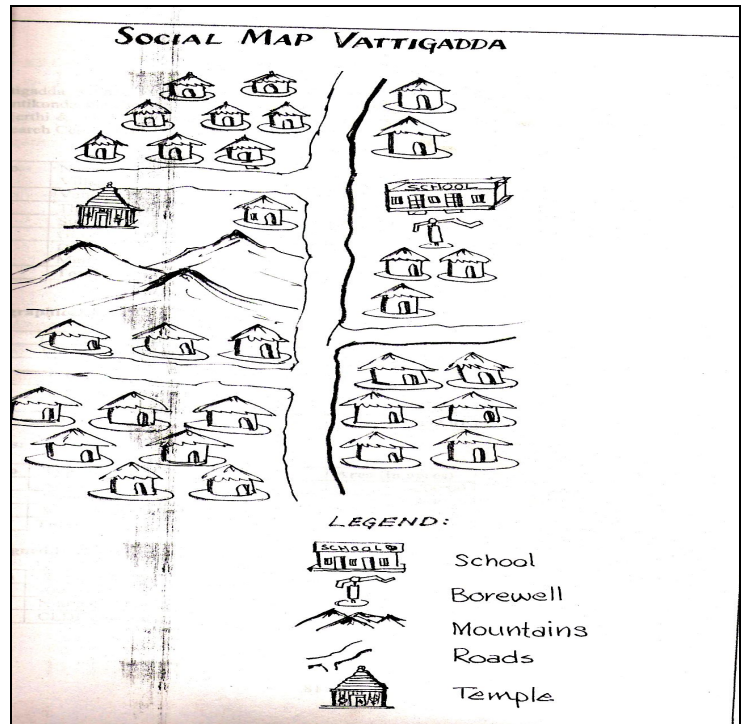 SOCIAL MAP VATTIGADDA
SCHOOL
LEGEND:
SCHOOL
School
Borewell
Mountains
Roads
Temple